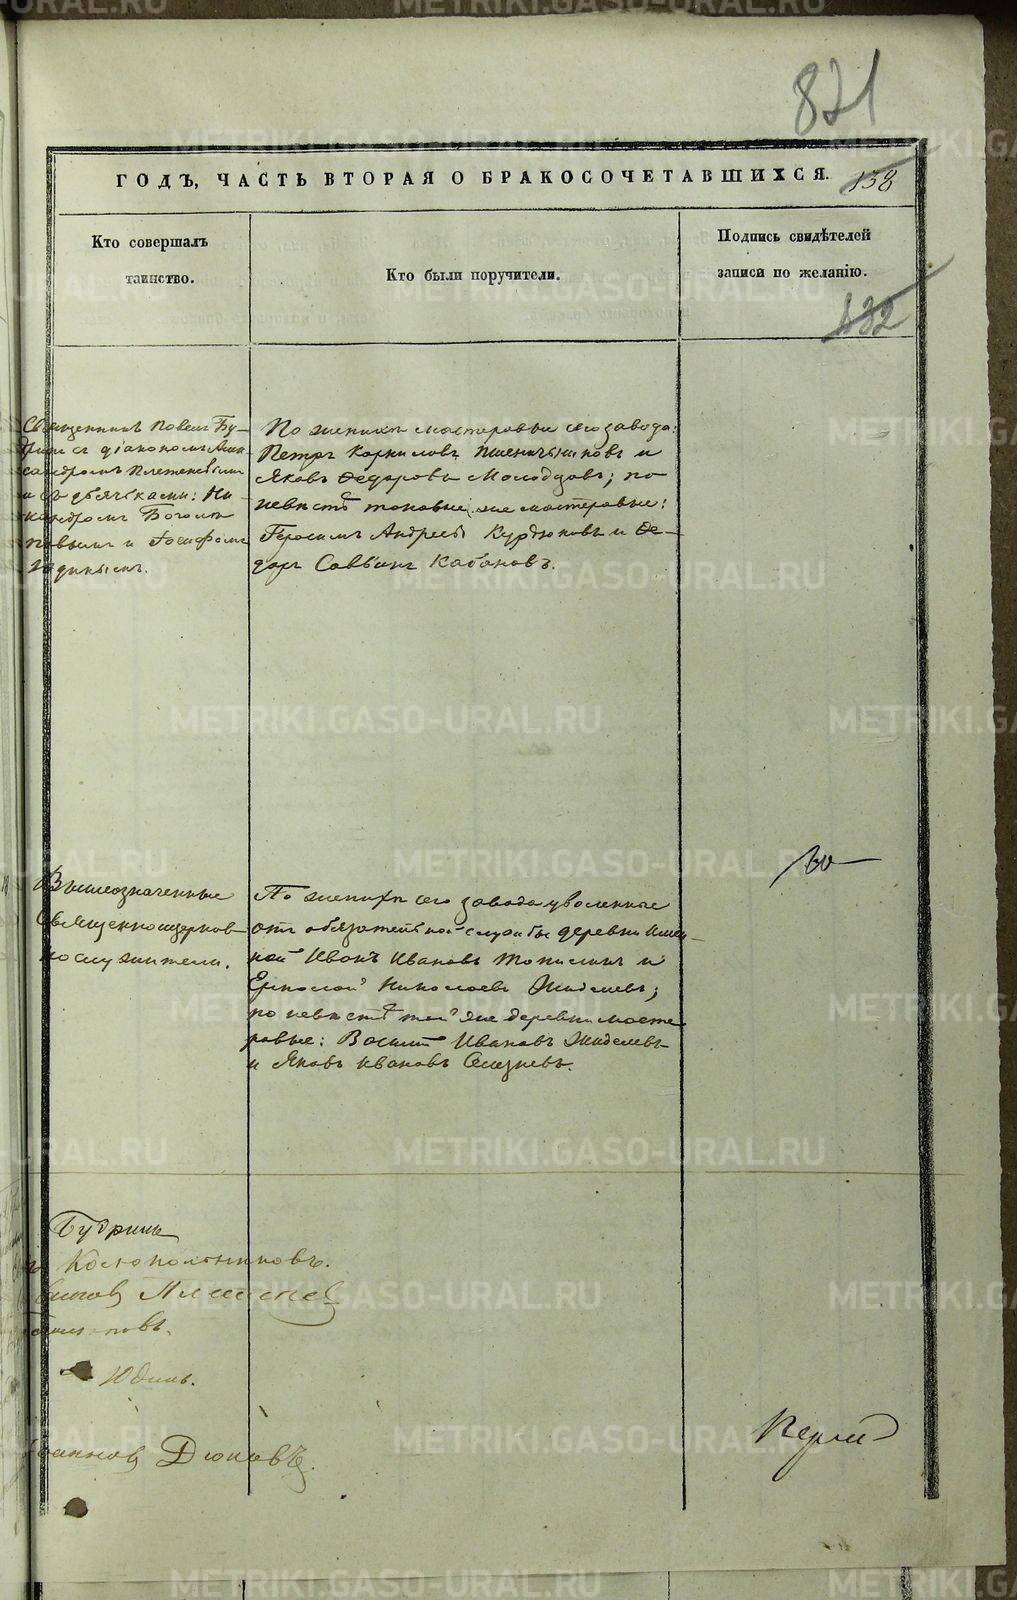 821
ГОДЪ, ЧАСТЬ ВТОРАЯ О БРАКОСОЧЕТАВШИХСЯ.
138
Кто совершалъ
таинство.
Кто были поручители.
Подпись свидѣтелей
записи по желанію.
432
Священникъ Павелъ Бу-
дринъ съ діакономъ Алек
сандромъ Плетеневымъ
и съ дьячками: Ни-
кандромъ Боголе
повымъ и Іосифомъ
Юдинымъ.
По женихѣ мастеровые сего завода:
Петръ Корниловъ Пшеничниковъ и
Яковъ Ѳедоровъ Молодцовъ; по
невѣстѣ таковые же мастеровые:
Герасимъ Андреевъ Курдюковъ и Ѳе-
доръ Саввинъ Кабановъ.
Вышеозначенные
Священноцерков
нослужители.
По женихѣ сего завода уволенные
отъ обязательной службы деревни
Иванъ Ивановъ Топилинъ и
Ермолай Николаевъ Жиделевъ;
по невѣстѣ той же деревни масте
ровые: Василій Ивановъ Жиделевъ
и Яковъ Ивановъ Селезневъ.
Будринъ
Космопольниковъ.
Плетеневъ
Юдинъ.
Дюковъ.
METRIKI.GASO-URAL.RU